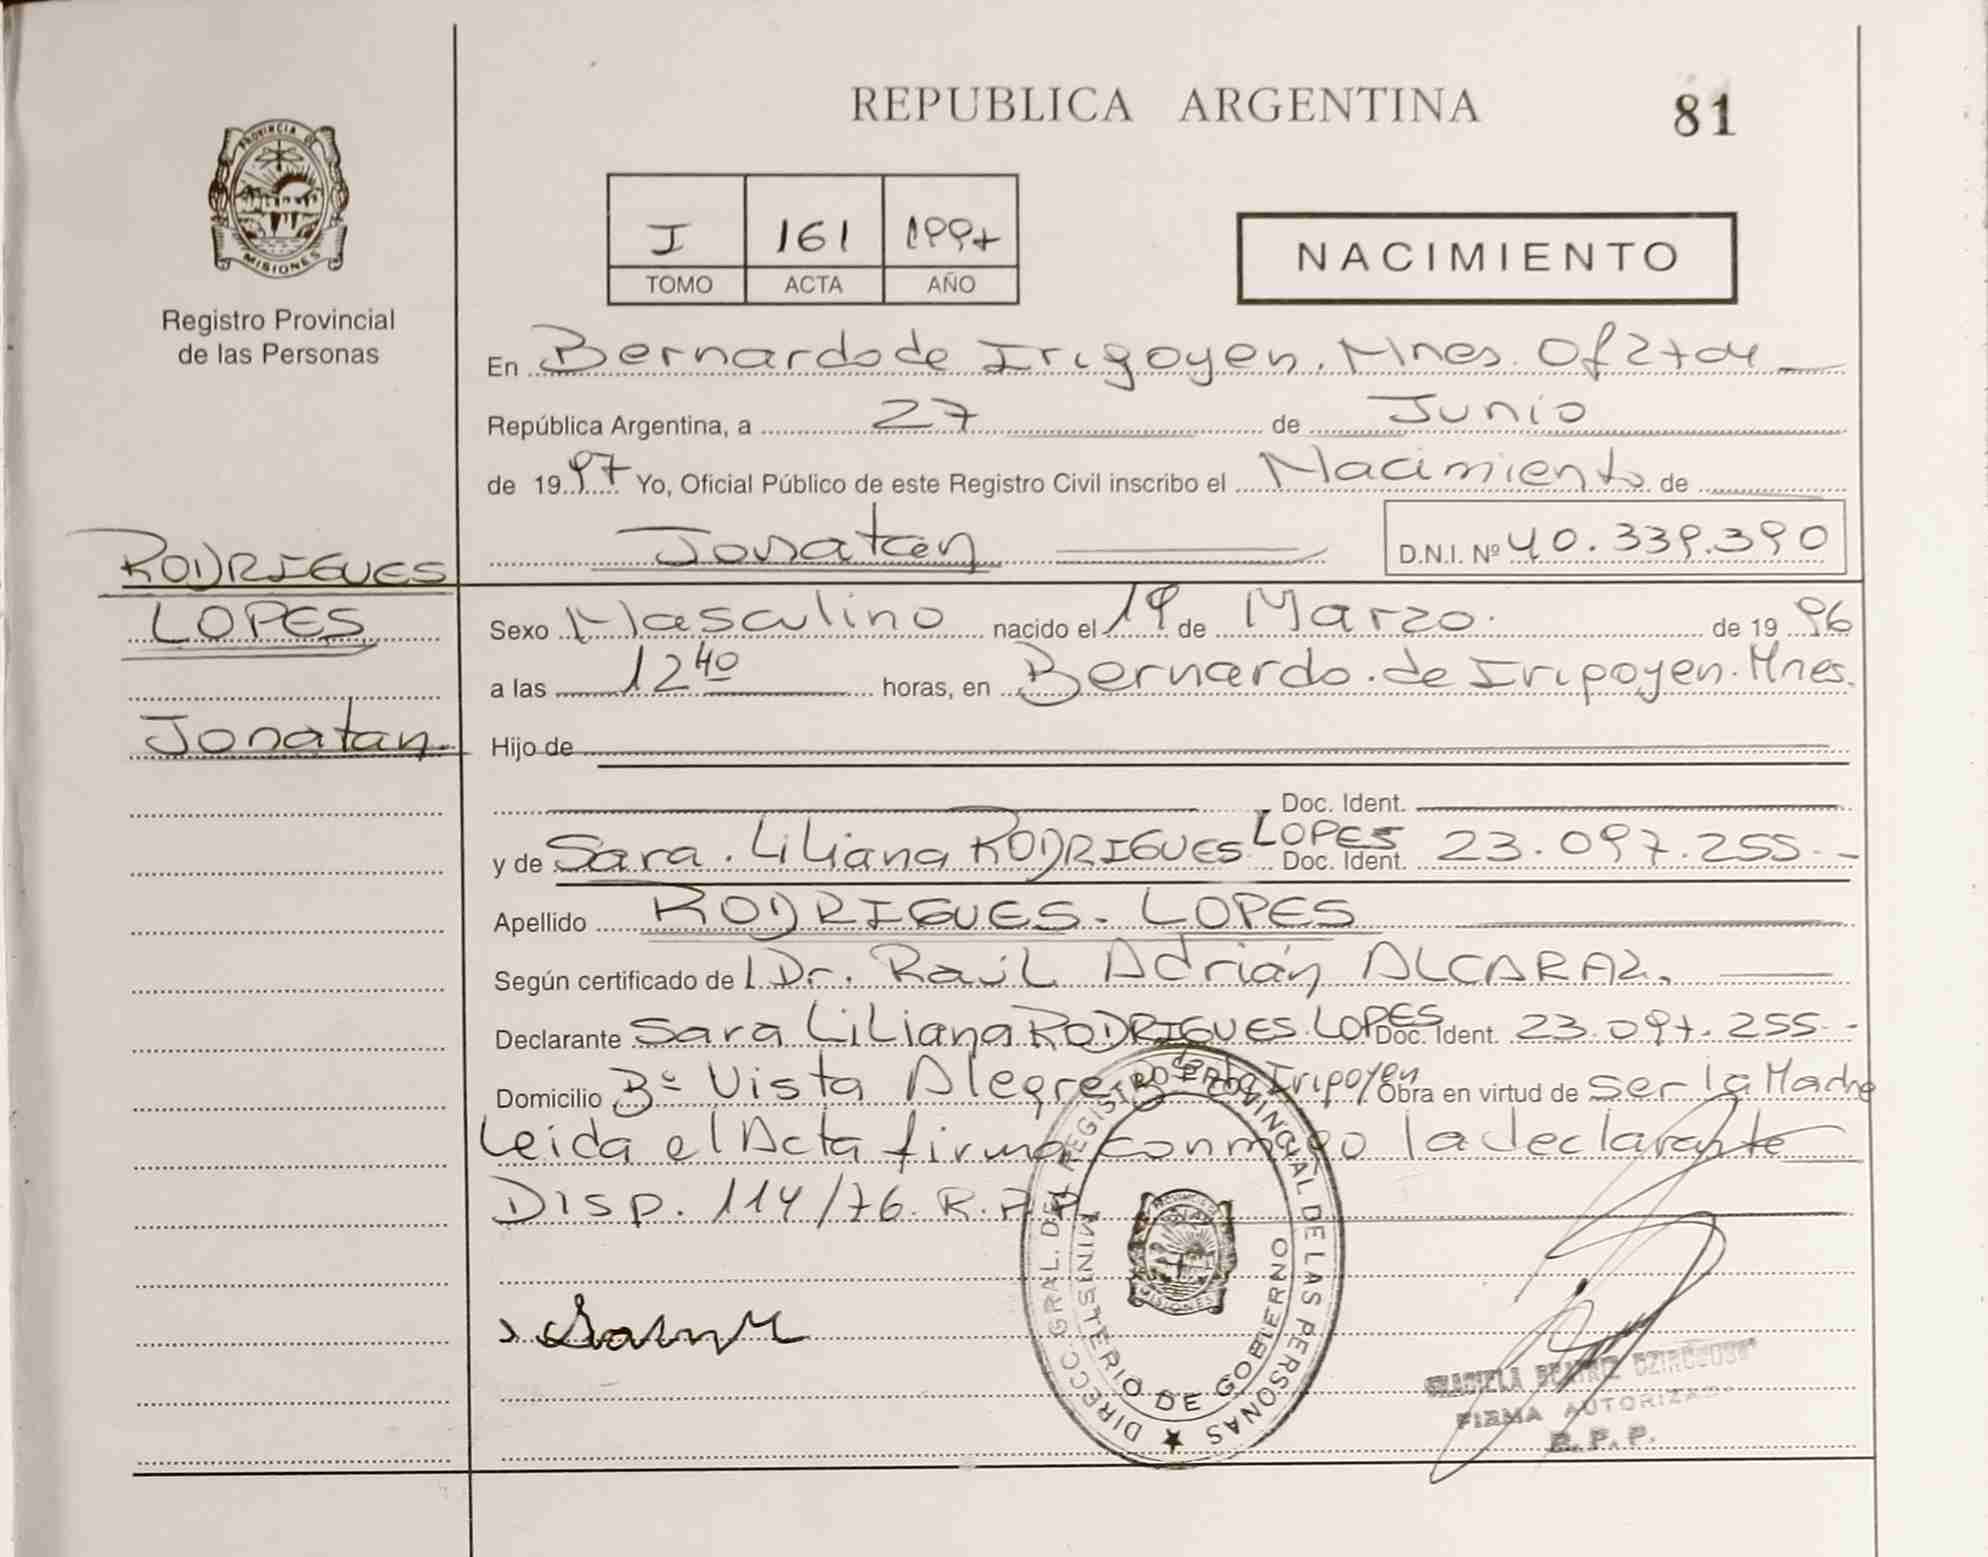 REPUBLICA ARGENTINA
81
PROVINCIA DE
MISIONES
Registro Provincial
de las Personas
I 161 1997
TOMO ACTA AÑO
NACIMIENTO
En Bernardo de Irigoyen. Mnes. Of 2704
República Argentina, a 27 de Junio
de 1997 Yo, Oficial Público de este Registro Civil inscribo el Nacimiento de
Jonatan
D.N.I. Nº 40.339.390
RODRIGUES
LOPES
Jonatan
Sexo Masculino nacido el 19 de Marzo. de 1996
a las 12 40 horas, en Bernardo de Irigoyen. Mnes.
Hijo de
Doc. Ident.
y de Sara Liliana RODRIGUES LOPES Doc. Ident. 23.097.255.-
Apellido RODRIGUES - LOPES
Según certificado de Dr. Raúl Adrián ALCARAZ.
Declarante Sara Liliana RODRIGUES LOPES Doc. Ident. 23.097.255.-
Domicilio Bº Vista Alegre Irigoyen Obra en virtud de ser la Madre
Leida el Acta firma conmigo la declarante
Disp. 114/76. R.P.P.
DIRECC. GRAL. DEL REGISTRO PROVINCIAL DE LAS PERSONAS
MINISTERIO DE GOBIERNO
PROVINCIA DE
MISIONES
GRACIELA BEATRIZ
FIRMA AUTORIZADA
R. P. P.